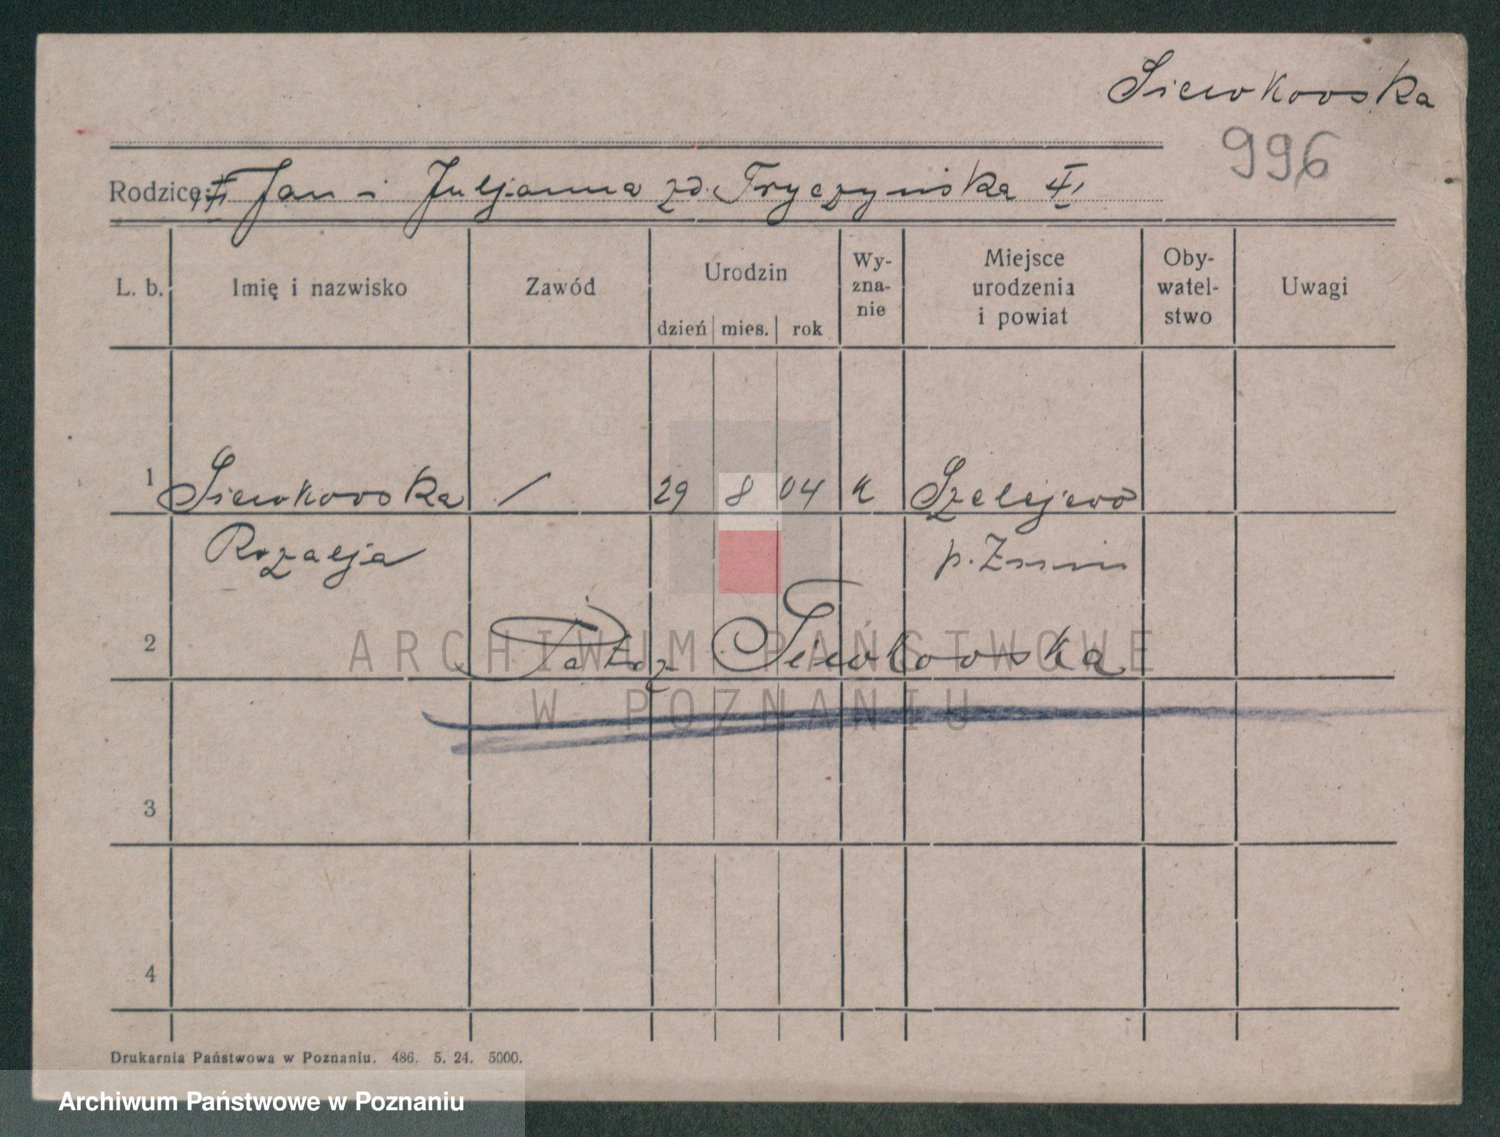 Siewkowska
996
Rodzice: Jan i Juljanna zd. Tryczyńska
L. b.
Imię i nazwisko
Zawód
Urodzin
dzień mies. rok
Wy-
zna-
nie
Miejsce
urodzenia
i powiat
Oby-
watel-
stwo
Uwagi
1 Siewkowska / 29 8 04 K Szelejewo
Rozalja p. Żnin
2 Siewkowska
ARCHIWUM PAŃSTWOWE
W POZNANIU
3
4
Drukarnia Państwowa w Poznaniu. 486. 5. 24. 5000.
Archiwum Państwowe w Poznaniu